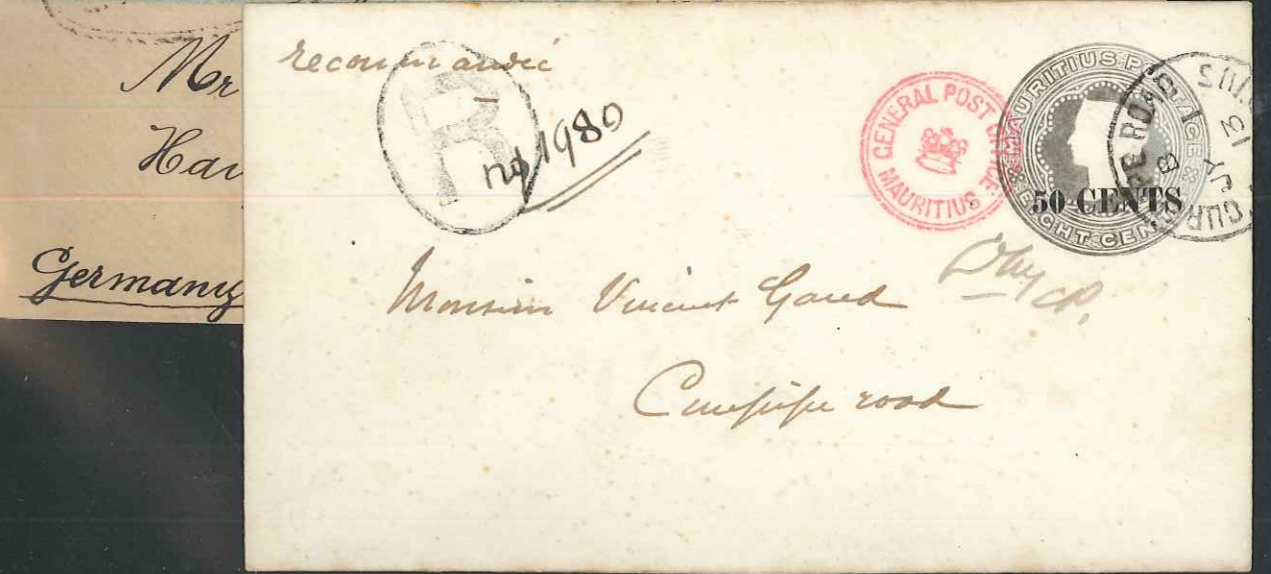 Mr
Germany
recommandé
R
no 1980
GENERAL POST OFFICE
MAURITIUS
MAURITIUS POSTAGE
50 CENTS
EIGHT CENTS
Monsieur Vincent
Curepipe road